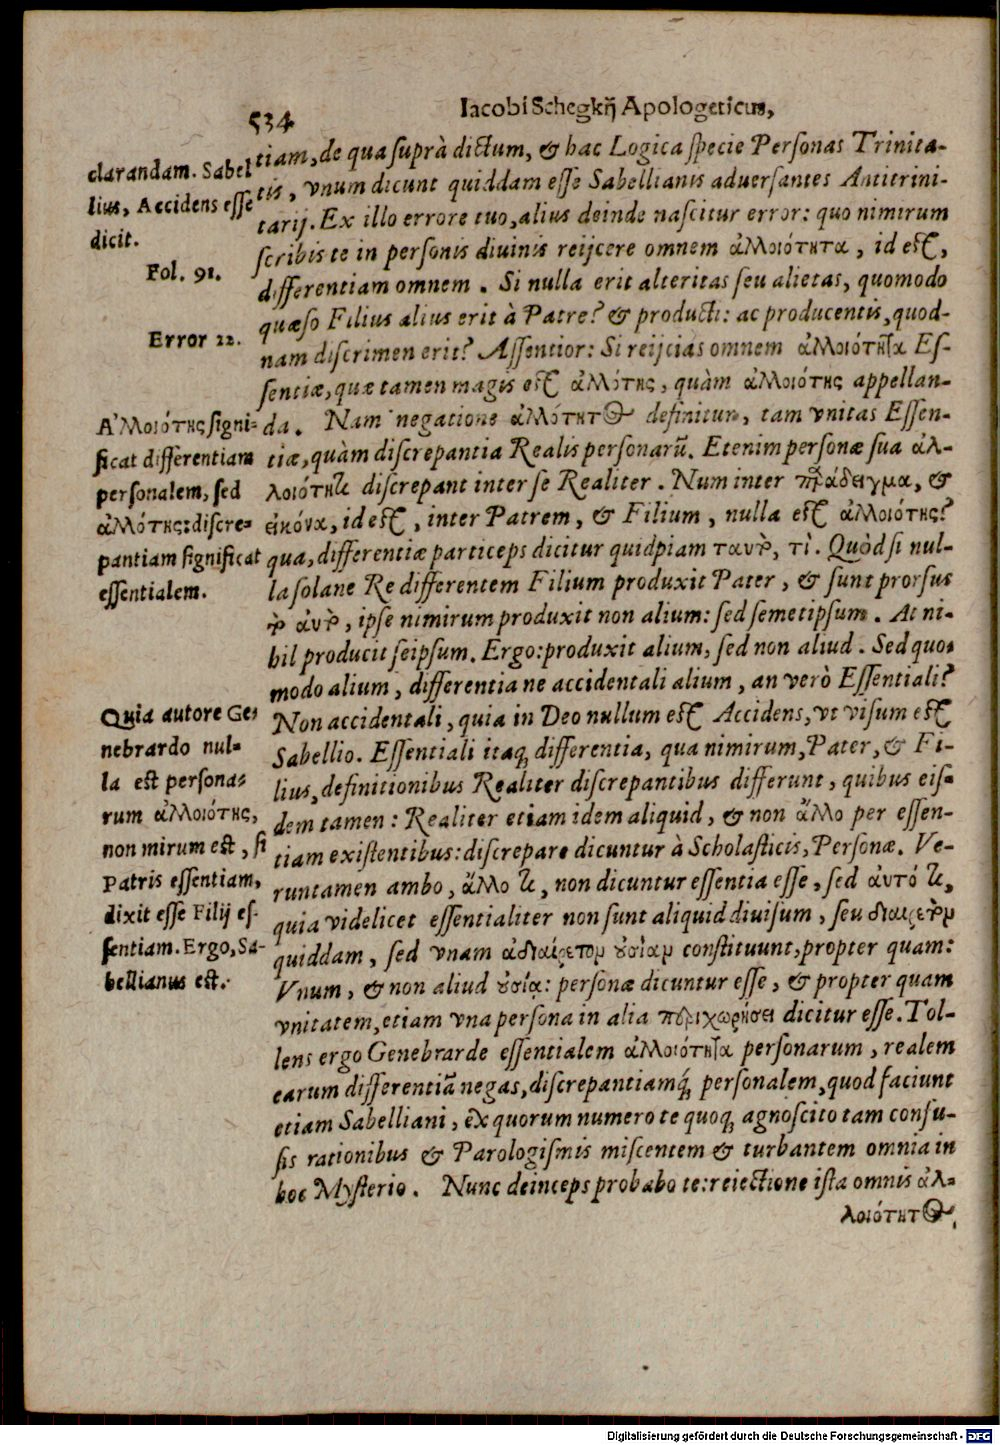 534
Iacobi Schegkij Apologeticus,
clarandam. Sabel
lius, Accidens esse
dicit.
Fol. 91.
Error 22.
Ἀλλοιότης signi-
ficat differentiam
personalem, sed
ἀλλότης: discre-
pantiam significat
essentialem.
Quia autore Ge-
nebrardo nul-
la est persona-
rum ἀλλοιότης,
non mirum est, si
Patris essentiam,
dixit esse Filij es-
sentiam. Ergo, Sa-
bellianus est.
tiam, de qua suprà dictum, & hac Logica specie Personas Trinita-
tis, vnum dicunt quiddam esse Sabellianis aduersantes Antitrini-
tarij. Ex illo errore tuo, alius deinde nascitur error: quo nimirum
scribis te in personis diuinis reijcere omnem ἀλλοιότητα, id est,
differentiam omnem. Si nulla erit alteritas seu alietas, quomodo
quæso Filius alius erit à Patre? & producti: ac producentis, quod-
nam discrimen erit? Assentior: Si reijcias omnem ἀλλοιότητα Es-
sentiæ, quæ tamen magis est ἀλλότης, quàm ἀλλοιότης appellan-
da. Nam negatione ἀλλότητος definitur, tam vnitas Essen-
tiæ, quàm discrepantia Realis personarū. Etenim personæ sua ἀλ-
λοιότητι discrepant inter se Realiter. Num inter παράδειγμα, &
εἰκόνα, id est, inter Patrem, & Filium, nulla est ἀλλοιότης?
qua, differentiæ particeps dicitur quidpiam ταυτὸ, τὶ. Quòd si nul-
la solane Re differentem Filium produxit Pater, & sunt prorsus
τὸ αὐτὸ, ipse nimirum produxit non alium: sed semetipsum. At ni-
hil producit seipsum. Ergo: produxit alium, sed non aliud. Sed quo-
modo alium, differentia ne accidentali alium, an verò Essentiali?
Non accidentali, quia in Deo nullum est Accidens, vt visum est
Sabellio. Essentiali itaq; differentia, qua nimirum, Pater, & Fi-
lius, definitionibus Realiter discrepantibus differunt, quibus eis-
dem tamen: Realiter etiam idem aliquid, & non ἄλλο per essen-
tiam existentibus: discrepare dicuntur à Scholasticis, Personæ. Ve-
runtamen ambo, ἄλλο τι, non dicuntur essentia esse, sed αὐτό τι,
quia videlicet essentialiter non sunt aliquid diuisum, seu διαιρετὸν
quiddam, sed vnam ἀδιαίρετον οὐσίαν constituunt, propter quam:
Vnum, & non aliud οὐσίᾳ: personæ dicuntur esse, & propter quam
vnitatem, etiam vna persona in alia περιχωρήσει dicitur esse. Tol-
lens ergo Genebrarde essentialem ἀλλοιότητα personarum, realem
earum differentiā negas, discrepantiamq́; personalem, quod faciunt
etiam Sabelliani, ex quorum numero te quoq; agnoscito tam confu-
sis rationibus & Parologismis miscentem & turbantem omnia in
hoc Mysterio. Nunc deinceps probabo te: reiectione ista omnis ἀλ-
λοιότητος,
Digitalisierung gefördert durch die Deutsche Forschungsgemeinschaft - DFG